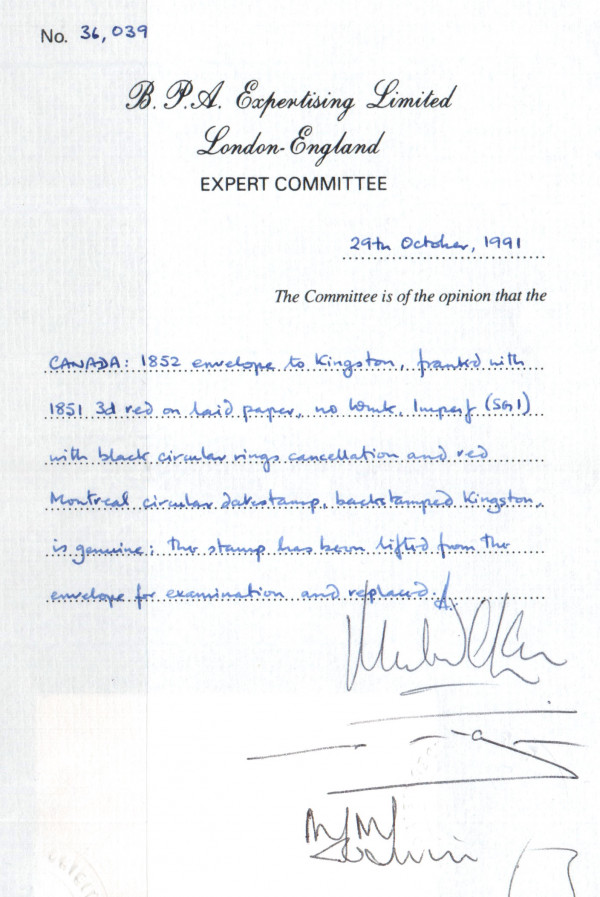 No. 36,039
B. P. A. Expertising Limited
London-England
EXPERT COMMITTEE
29th October, 1991
The Committee is of the opinion that the
CANADA: 1852 envelope to Kingston, franked with
1851 3d red on laid paper, no wmk, Imperf (SG1)
with black circular rings cancellation and red
Montreal circular datestamp, backstamped Kingston,
is genuine; the stamp has been lifted from the
envelope for examination and replaced